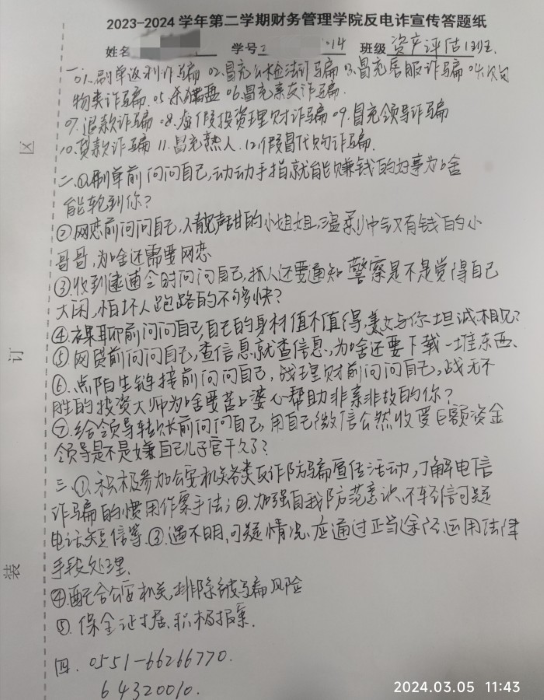 2023-2024学年第二学期财务管理学院反电诈宣传答题纸
姓名 学号 14 班级 资产评估1班
一.01.刷单返利诈骗 02.冒充公检法诈骗 03.冒充客服诈骗 04.
物类诈骗.05.杀猪盘 06.冒充亲友诈骗.
07.退款诈骗 08.虚假投资理财诈骗 09.冒充领导诈骗
10.贷款诈骗 11.冒充熟人.12.假冒代购诈骗.
二.①刷单前问问自己,动动手指就能赚钱的好事为啥
能轮到你?
②网恋前问问自己,人靓声甜的小姐姐,温柔帅气有钱的小
哥哥,为啥还需要网恋
③收到逮通令时问问自己,抓人还要通知警察是不是觉得自己
太闲,怕坏人跑路的不够快?
④裸聊前问问自己,自己的身材值不值得美女与你坦诚相见?
⑤网贷前问问自己,查信息就查信息,为啥还要下载一堆东西.
⑥点陌生链接前问问自己,投理财前问问自己,战无不
胜的投资大师为啥要苦口婆心帮助非亲非故的你?
⑦给领导转账前问问自己,用自己微信公然收受巨额资金
领导是不是嫌自己儿子官干久了?
三.①积极参加公安机关各类反诈防骗宣传活动,了解电信
诈骗的惯用作案手法;②.加强自我防范意识,不轻信可疑
电话短信等.③.遇不明,可疑情况,应通过正当途径,运用法律
手段处理.
④配合公安机关,排除被骗风险
⑤.保全证据.积极报案.
四.0551-66266770.
64320010.
区
订
装
2024.03.05 11:43